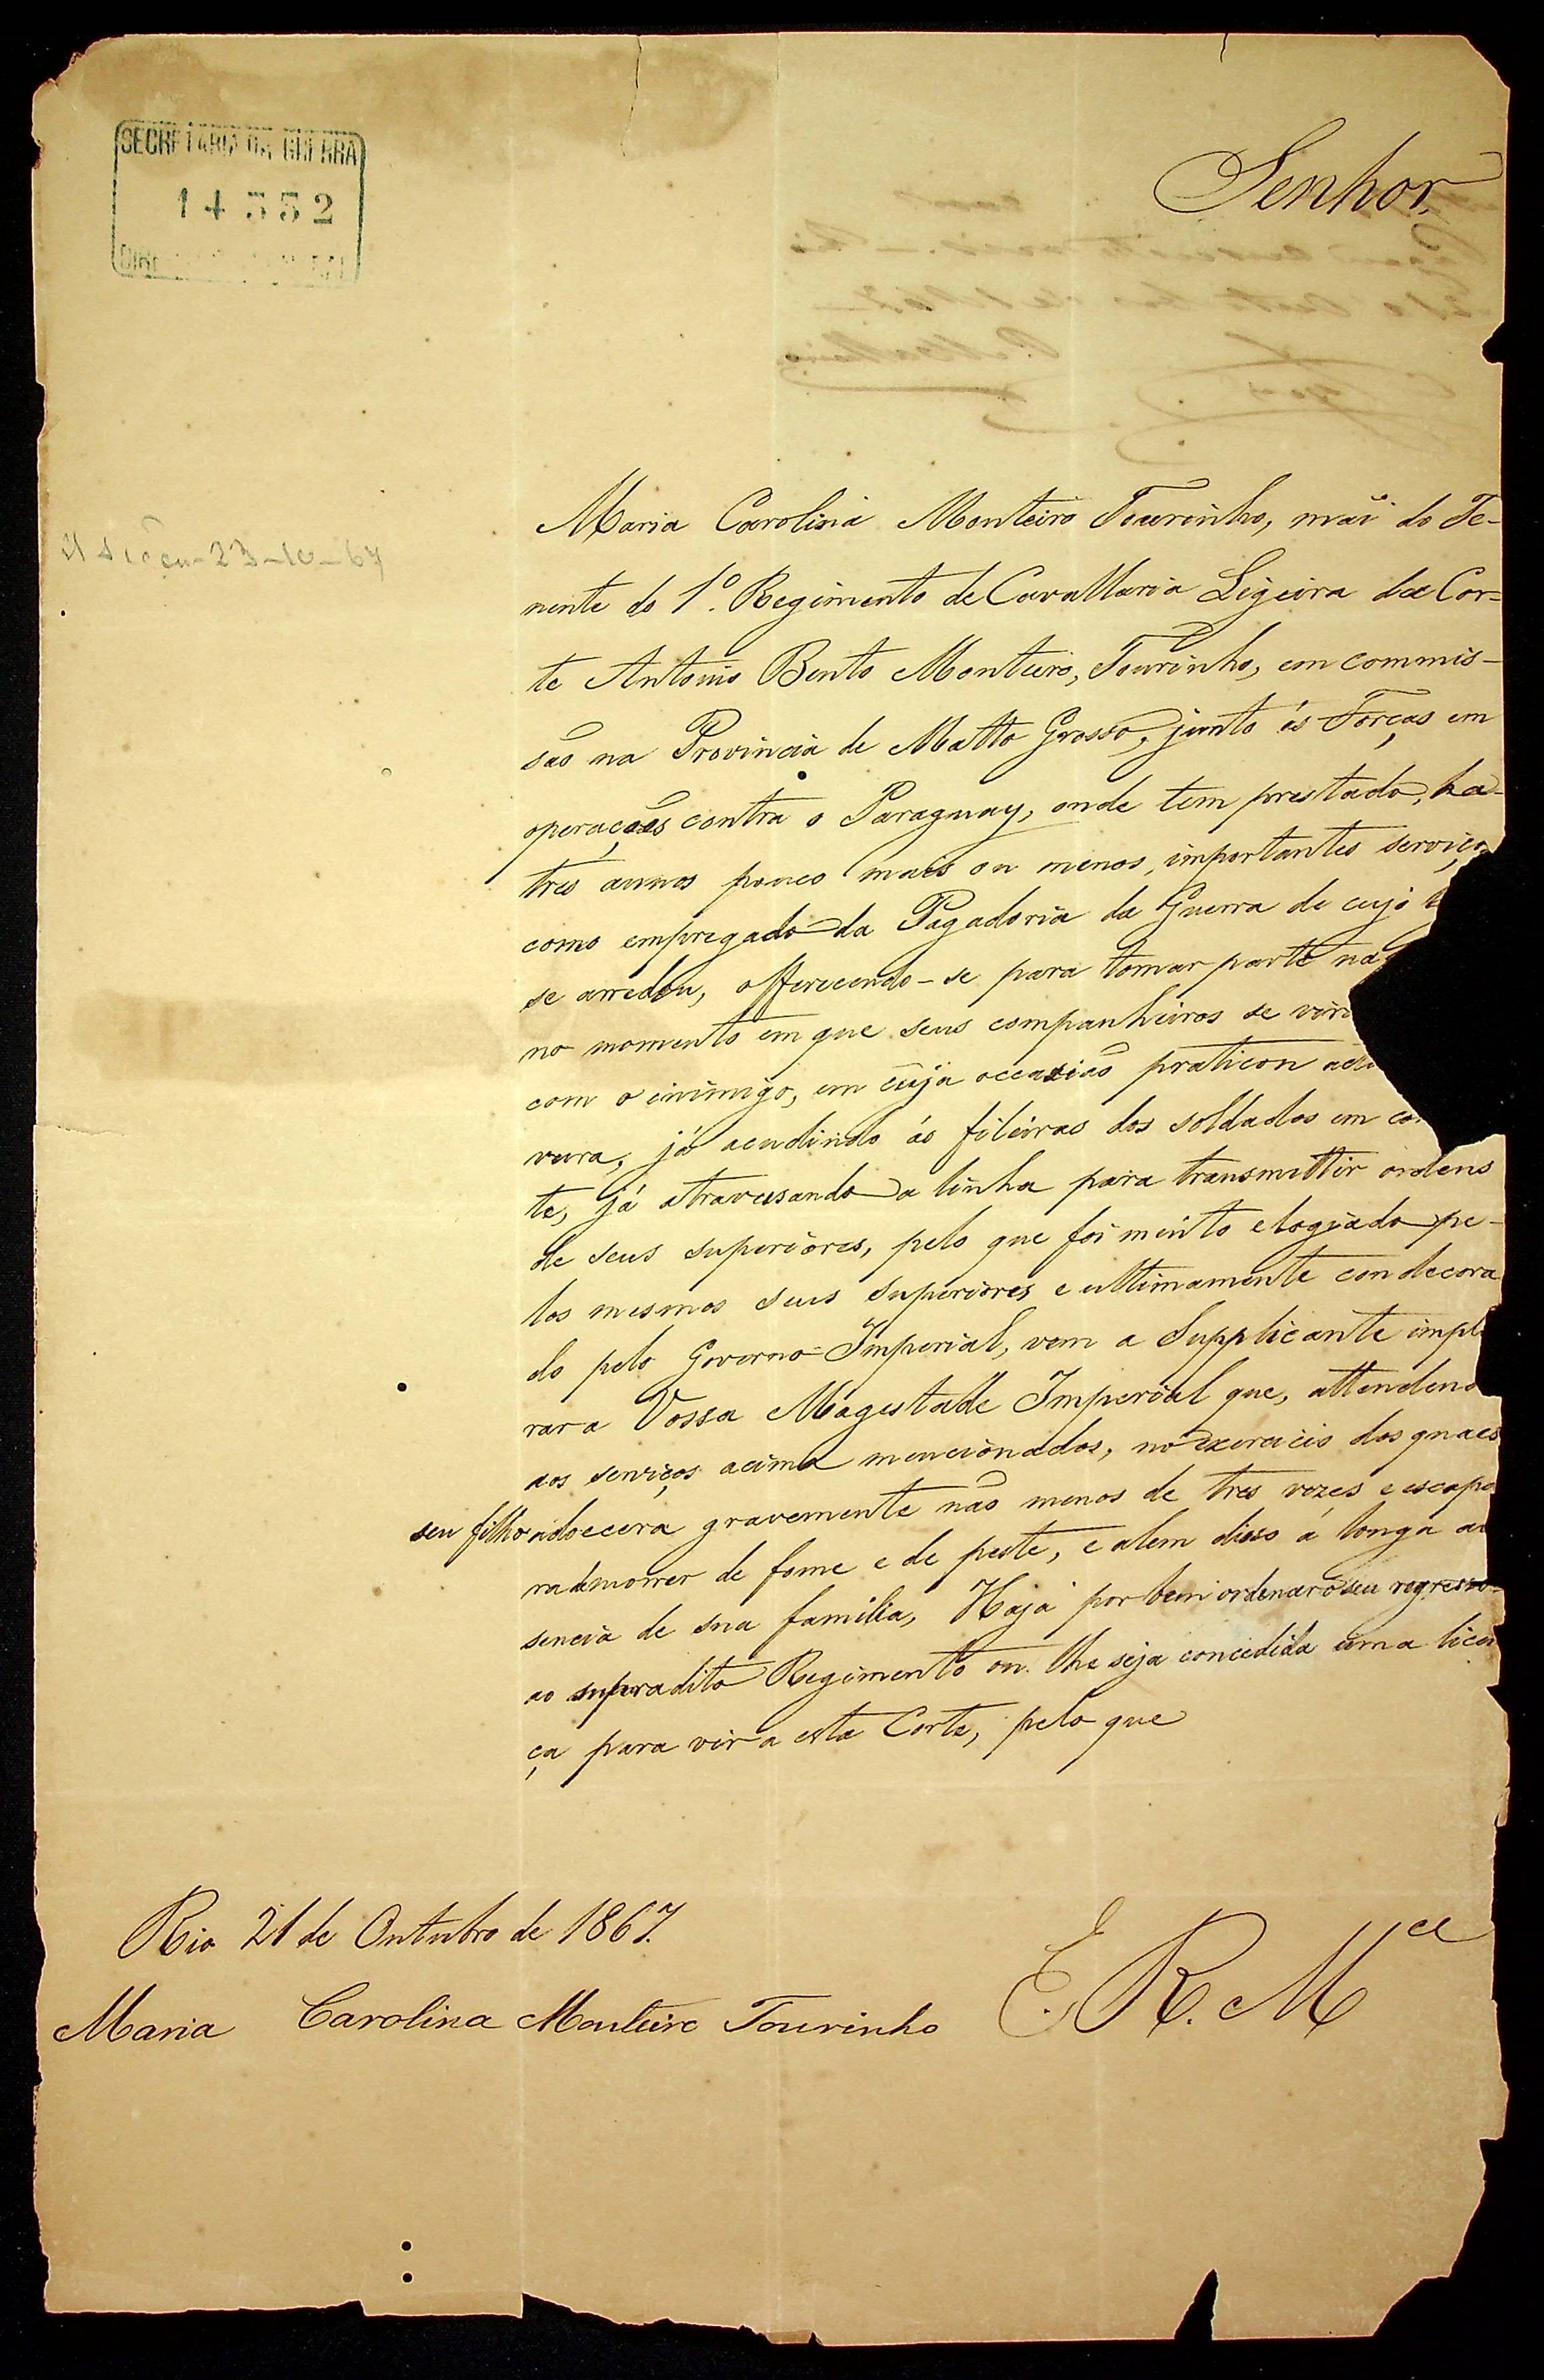 SECRETARIA DA GUERRA
14552
Senhor,
23-10-67
Maria Carolina Monteiro Tourinho, mãi do Te-
nente do 1º. Regimento de Cavallaria Ligeira da Cor-
te Antonio Bento Monteiro, Tourinho, em commis-
são na Provincia de Matto Grosso, junto ás Forças em
operações contra o Paraguay, onde tem prestado, ha
tres annos pouco mais ou menos, importantes serviço
como empregado da Pagadoria da Guerra de cujo
se arredou, offerecendo-se para tomar parte na
no momento em que seus companheiros se
com o inimigo, em cuja occasião praticou
vura, já acudindo ás fileiras dos soldados em
te, já atravessando a linha para transmittir ordens
de seus superiores, pelo que foi muito elogiado pe-
los mesmos seus superiores e ultimamente condecora
do pelo Governo Imperial, vem a Supplicante implo
rar a Vossa Magestade Imperial que, attendend
aos serviços acima mencionados, no exercicio dos quaes
seu filho adoecera gravemente não menos de tres vezes e escapa
ra de morrer de fome e de peste, e alem disso á longa au
sencia de sua familia, Haja por bem ordenar o seu regresso
ao supradito Regimento ou lhe seja concedida uma licen
ça para vir a esta Corte, pelo que
Rio 21 de Outubro de 1867.
E. R. Mce
Maria Carolina Monteiro Tourinho